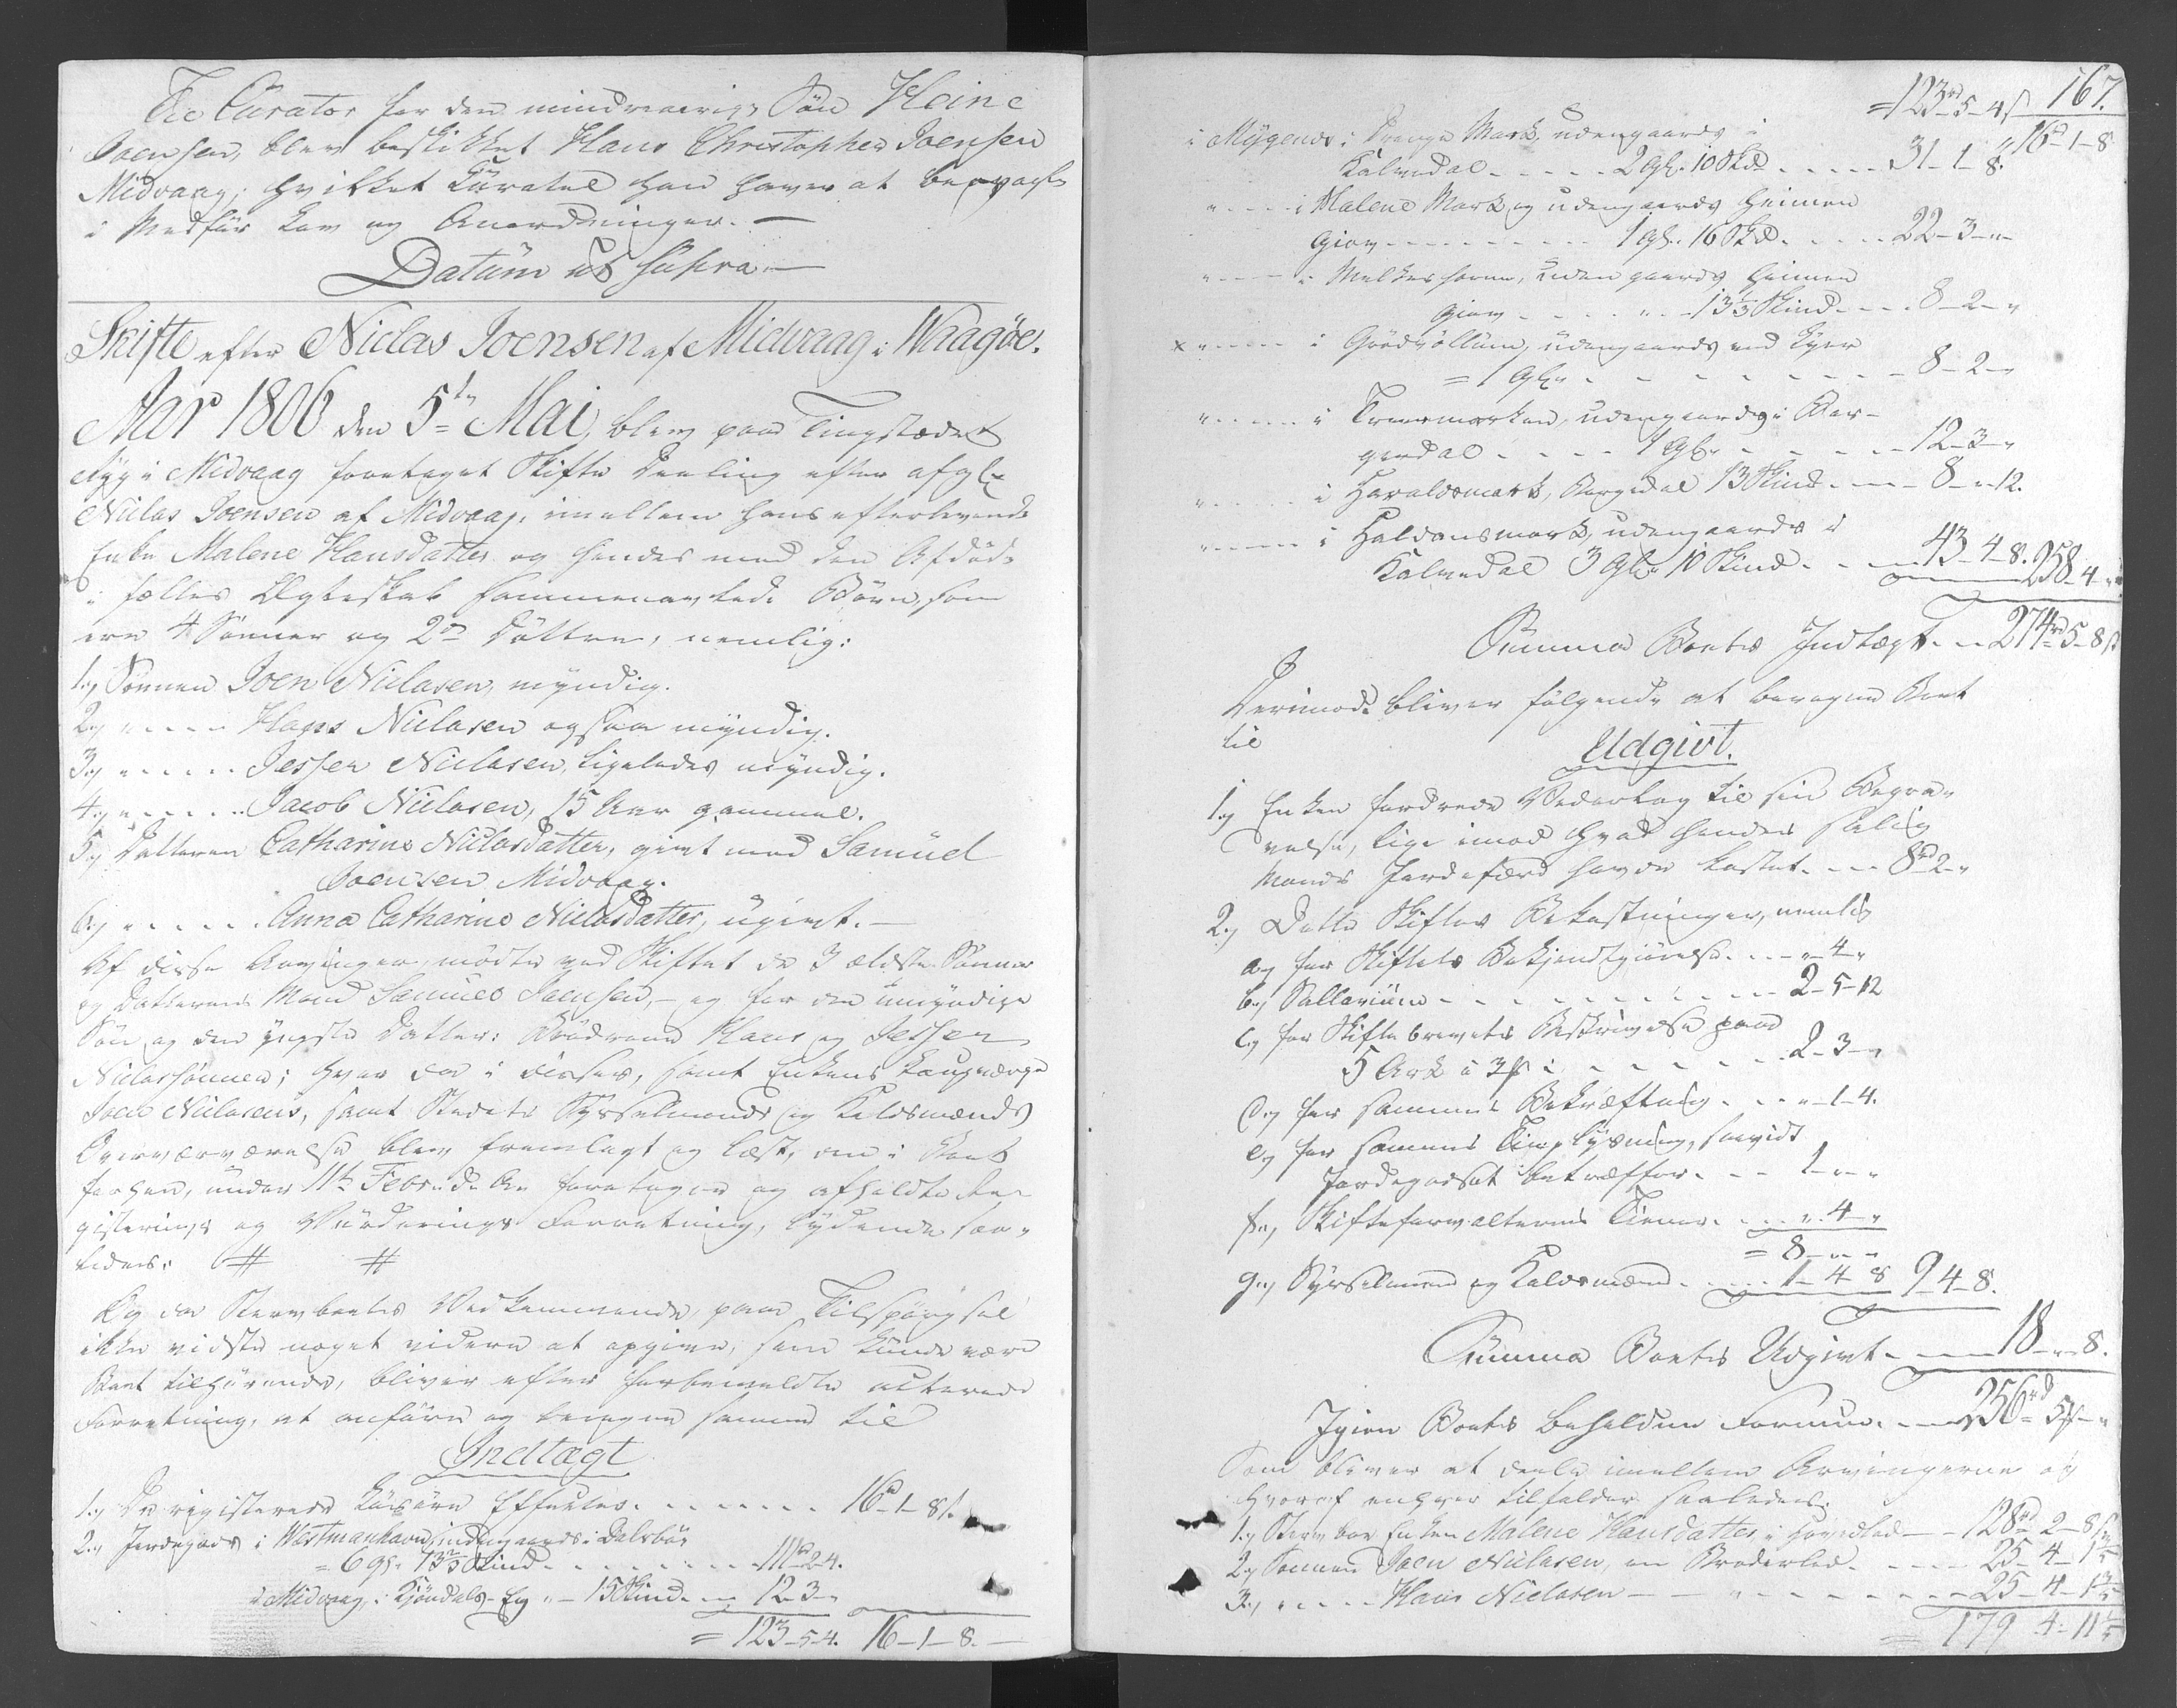 Til Curator for den mindreaarige Søn Heine
Joensen, blev beskikket Hans Christopher Joensen
Midvaag; hvilket Curatel han haver at
i Medfør Lov og Anordninger. —
Datum ut supra —
Skifte efter Niclas Joensen af Midvaag i Waagøe.
Aar 1806 den 5te Mai, blev paa Tingstædet
Ryg i Midvaag foretaget Skifte Deeling efter afgl:
Niclas Joensen af Midvaag, imellem hans efterlevende
Enke Malene Hansdatter og hendes med den Afdøde
i fælles Ægteskab sammenavlede Børn, som
ere 4 Sønner og 2de Døttre, nemlig:
1.) Sønnen Joen Niclasen, myndig.
2.) " - - - - Hans Niclasen ogsaa myndig.
3.) " - - - - Jesper Niclasen, ligeledes myndig.
4.) " - - - - Jacob Niclasen, 15 Aar gammel.
5.) Datteren Catharine Niclasdatter, givt med Samuel
Joensen Midvaag.
6.) " - - - - Anna Catharine Niclasdatter, ugivt. —
Af disse Arvinger, mødte ved Skiftet de 3 ældste Sønner
og Datterens Mand Samuel Joensen, - og for den umyndige
Søn og den yngste Datter: Brødrene Hans og Jesper
Niclassønner; hvor da i disses, samt Enkens Laugværge
Joen Niclasens, samt Stedets Sysselmands og Kaldsmænds
Overværværelse blev fremlagt og læst, den i Boet
forhen, under 11te Febr: d. A. foretagne og afholdte Re-
gisterings og Vurderings Forretning, lydende saa-
ledes: # #
Og da Stervboets Vedkommende, paa Tilspørgsel
ikke vidste noget videre at opgive, som kunde være
Boet tilhørende, bliver efter forbemeldte acterede
Forretning, at anføre og beregne samme til
Indtægt
1.) De registerede Løsøre Effecter. - - - - - - - 16rd 1 - 8 s.
2.) Jordegods i Westmanhavn, indengaards i Dalsbøe
= 6 gl. 13 2/3 Skind. - - - - - - - 111rd 2 4.
i Midvaag, i Kjøndals-Eg " - 15 Skind. - - 12 - 3 - "
= 123 - 5 - 4. 16 - 1 - 8. —
= 123rd 5 - 4 s 167.
16rd - 1 - 8
i Mygenes: Drenge Mark, udengaards i
Kalvedal - - - - - 2 gl. 10 Skd - - - - - 31 - 1 - 8.
" - - - - i Malene Mark, og udengaards Heimen
Giov - - - - - - - - 1 gl. 16 Skd. - - - - 22 - 3 - "
" - - - - i Melkeshorn, uden gaards Heimen
Giov - - - - - " - - 13 1/3 Skind - - - - 8 - 2 - "
x " - - - - i Gørdvøllum, udengaards ved Kyer
= 1 gl. - - - - - - - - - - 8 - 2 - "
" - - - - i Trøemarken, udengaards i Bor-
gardal - - - - 1 gl. - - - - - - 12 - 3 - "
" - - - - i Haraldsmark, Borgedal 13 Skind - - - 8 - " - 12.
" - - - - i Haldansmark, udengaards i
Kalvedal 3 gl. 10 Skind - - - 43 - 4 - 8. 258 - 4 - "
Summa Boets Indtægt - - 274rd 5 - 8 s
Derimod bliver følgende at beregne Boet
til
Udgivt.
1.) Enken fordrede Vederlag til sin Begra-
velse, lige imod hvad hendes salig
Mands Jordefærd havde kostet - - - 8rd 2 - "
2.) Dette Skiftes Bekostninger, nemlig
a.) for Skiftets Bekjendtgiørelse - - - " - 4 - "
b.) Sallarium - - - - - - - - - - - 2 - 5 - 12
c.) for Skiftebrevets Beskrivelse paa
5 Ark à 3 s - - - - - - - - - 2 - 3 - "
d.) for sammes Bekræftning - - - " - 1 - 4.
e.) for sammes Tinglysning, saavidt
Jordegodset betræffer - - - 1 - " - "
f.) Skifteforvalterens Tienere - - - " - 4 - "
= 8 - " - "
g.) Sysselmand og Kaldsmænd - - - - 1 - 4 - 8 9 - 4 - 8.
Summa Boets Udgivt - - - - 18 - " - 8.
Igien Boets Beholdne Formue - - - 256rd 5 - "
Som bliver at deele imellem Arvingerne og
hvoraf enhver tilfalder saaledes:
1.) Sterv boe Enken Malene Hansdatter i Hovedlod - - 128rd 2 - 8 s
2.) Sønnen Joen Niclasen, en Broderlod - - - - - 25 - 4 - 1 3/5
3.) " - - - - Hans Niclasen - - - " - - - - - - 25 - 4 - 1 3/5
179 - 4 - 11 1/5